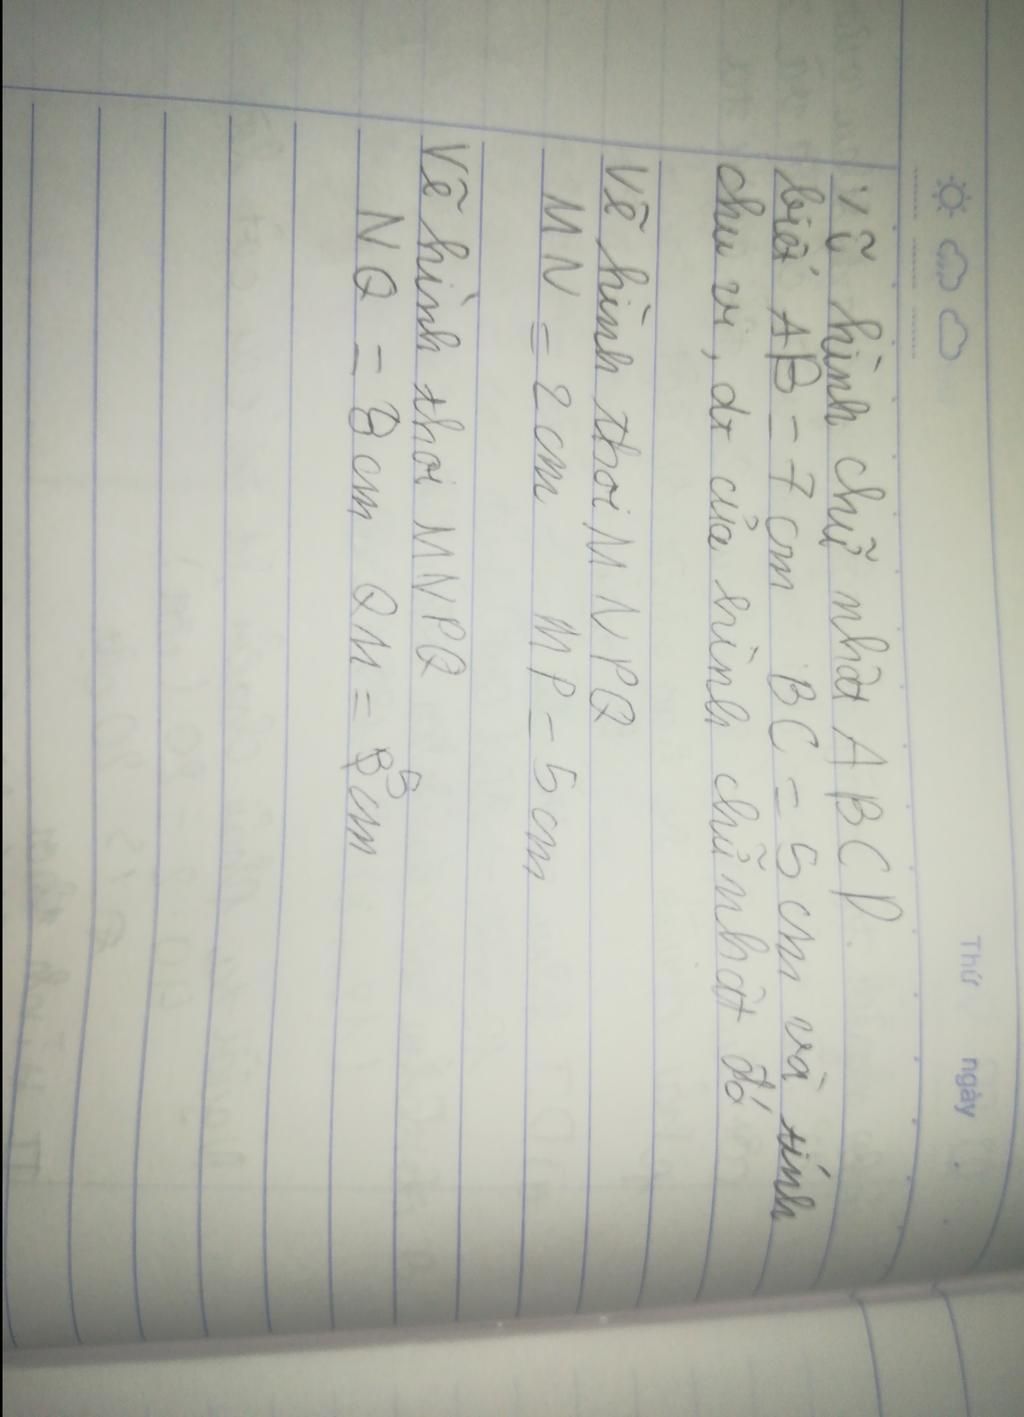 Thứ ngày
Vẽ hình chữ nhật ABCD
biết AB = 7cm BC = 5cm và tính
chu vi, dt của hình chữ nhật đó
Vẽ hình thoi MNPQ
MN = 2cm MP = 5cm
Vẽ hình thoi MNPQ
NQ = 8cm QM = 5cm